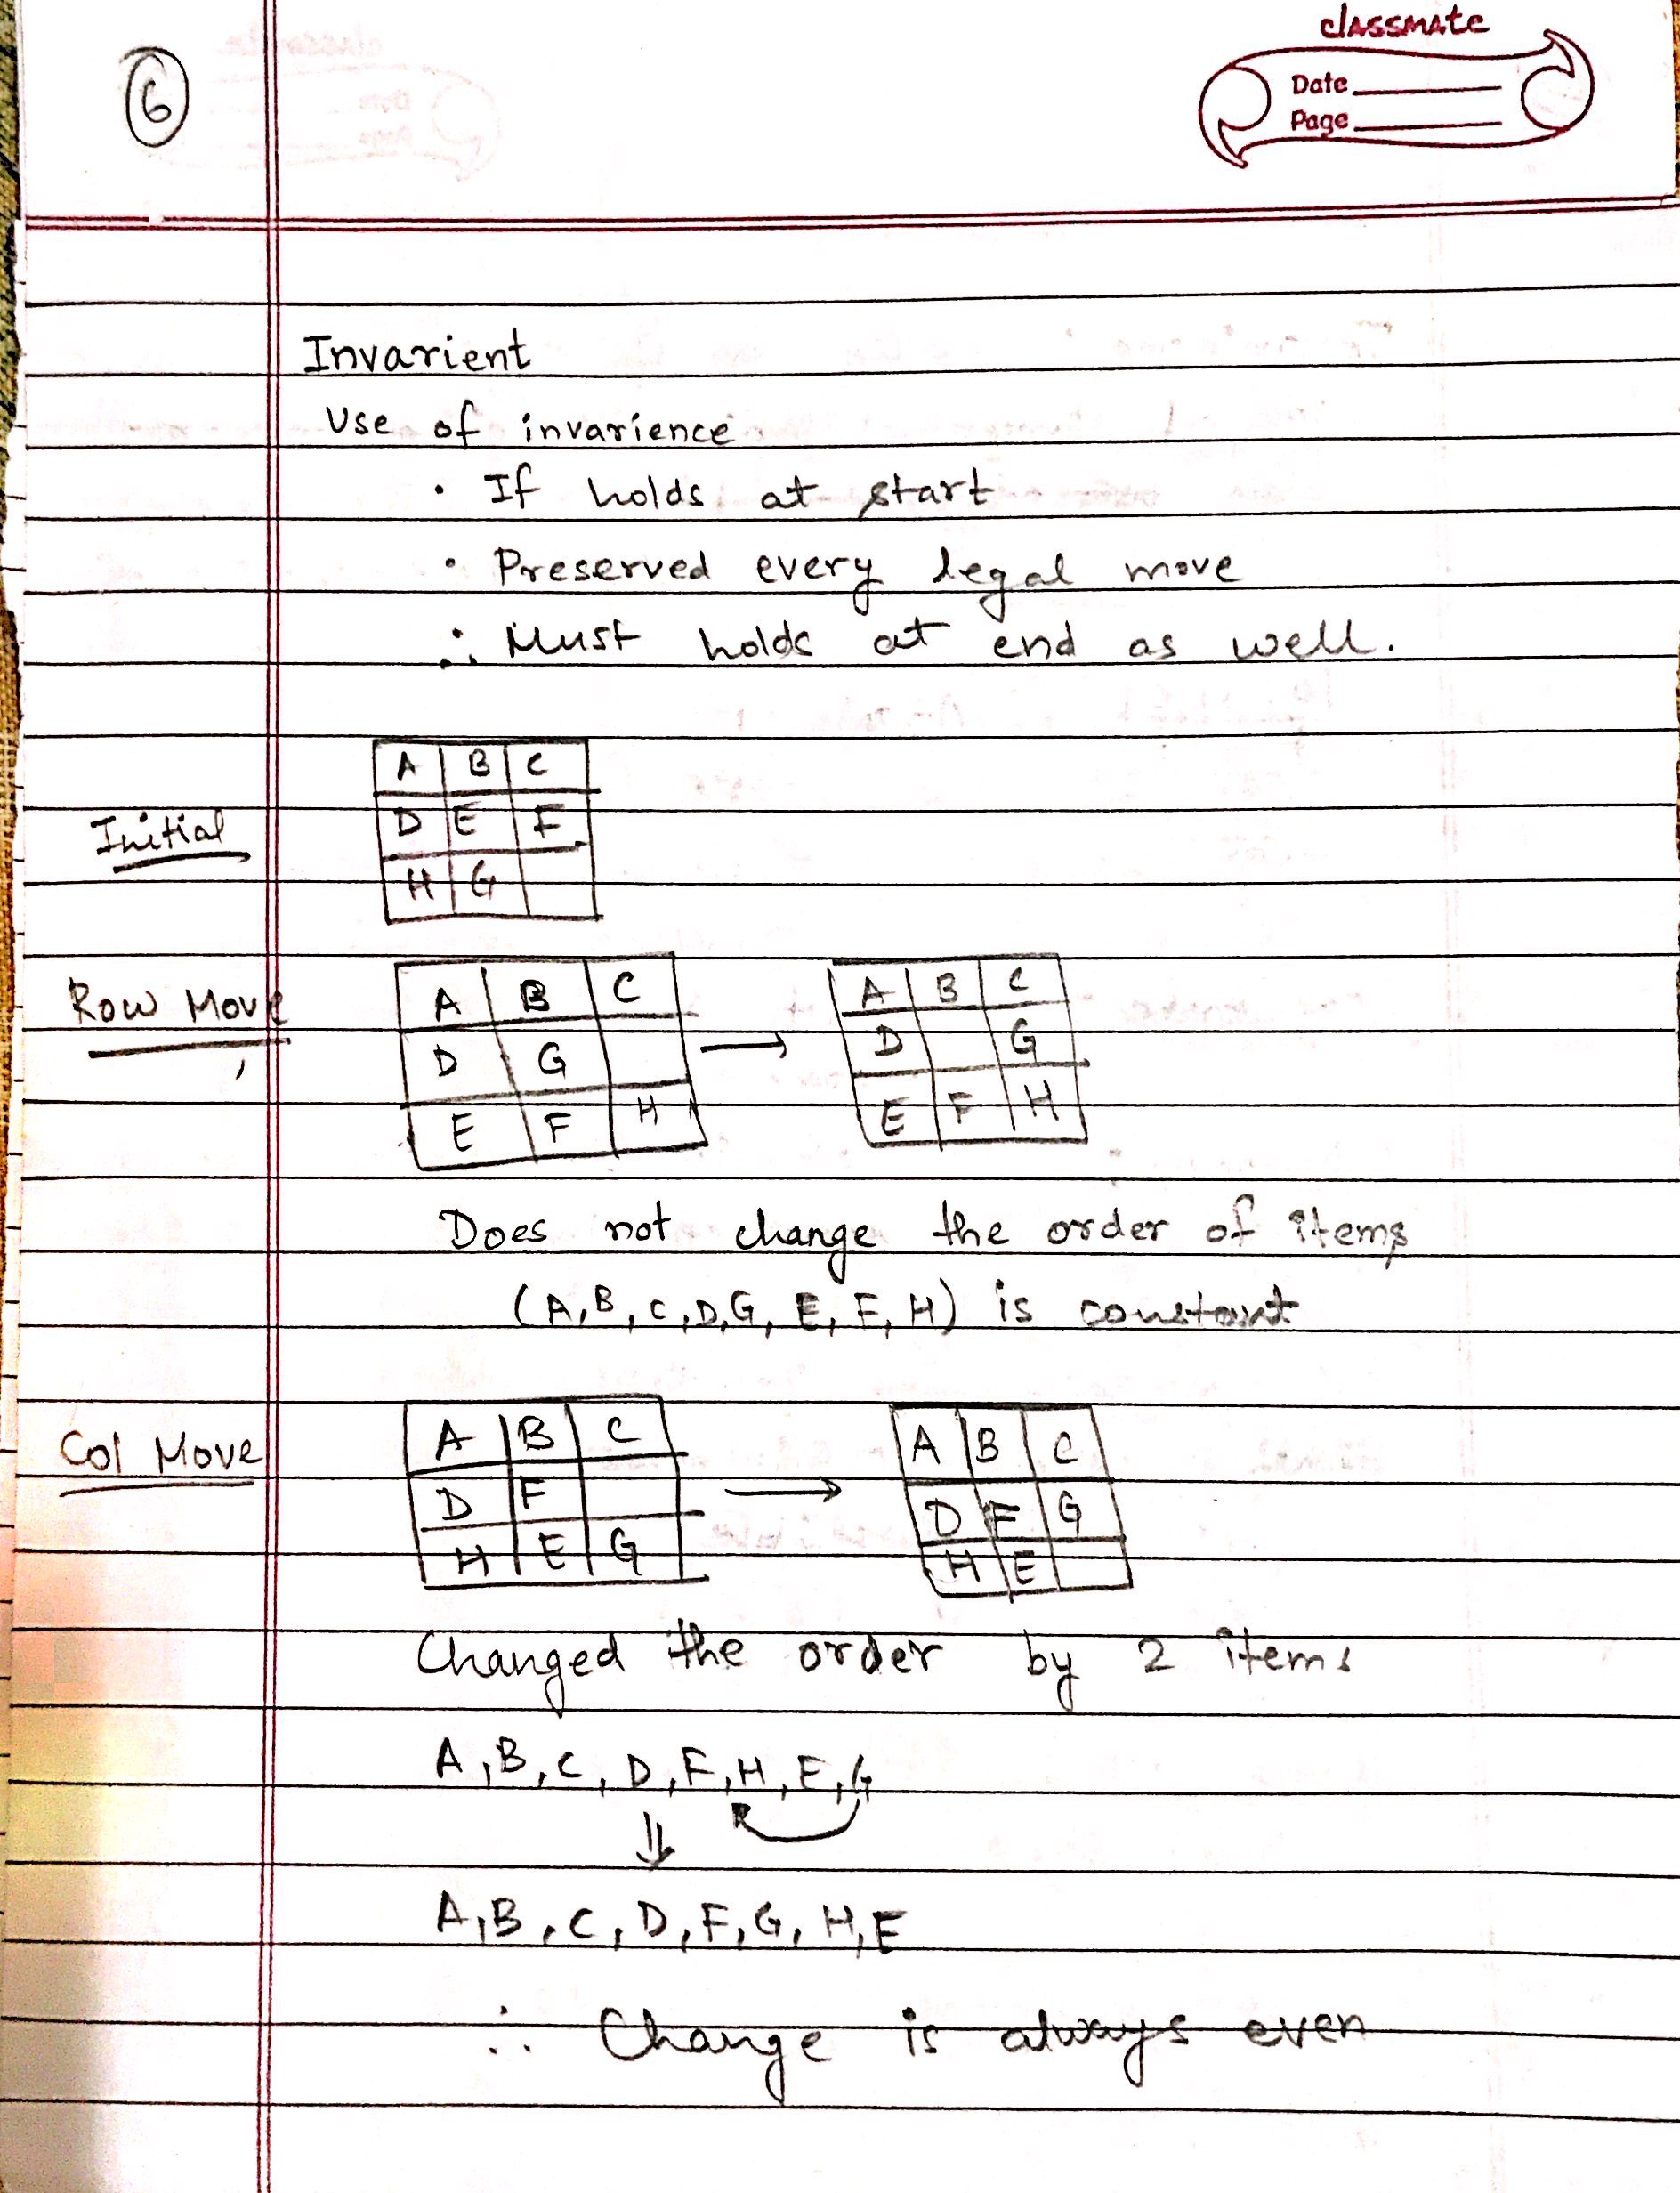 6
classmate
Date
Page
Invarient
Use of invarience
• If holds at start
• Preserved every legal move
∴ Must holds at end as well.
Initial
A B C
D E F
H G
Row Move
A B C
D G
E F H
→
A B C
D G
E F H
Does not change the order of items
(A, B, C, D, G, E, F, H) is constant
Col Move
A B C
D F
H E G
→
A B C
D F G
H E
Changed the order by 2 items
A, B, C, D, F, H, E, G
⇓
A, B, C, D, F, G, H, E
∴ Change is always even